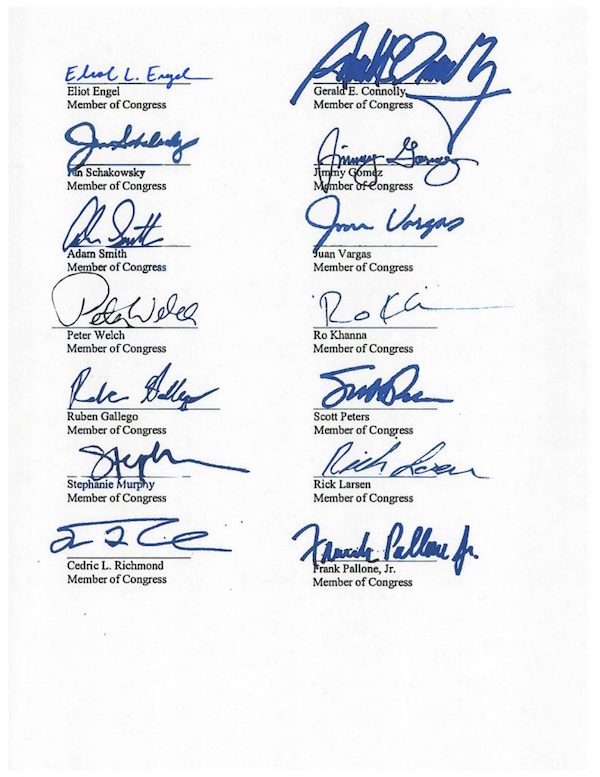 Eliot L. Engel
Eliot Engel
Member of Congress
Gerald E. Connolly
Member of Congress
Jan Schakowsky
Jan Schakowsky
Member of Congress
Jimmy Gomez
Jimmy Gomez
Member of Congress
Adam Smith
Adam Smith
Member of Congress
Juan Vargas
Juan Vargas
Member of Congress
Peter Welch
Peter Welch
Member of Congress
Ro Khanna
Member of Congress
Ruben Gallego
Ruben Gallego
Member of Congress
Scott Peters
Member of Congress
Stephanie Murphy
Member of Congress
Rick Larsen
Rick Larsen
Member of Congress
Cedric L. Richmond
Member of Congress
Frank Pallone Jr.
Frank Pallone, Jr.
Member of Congress